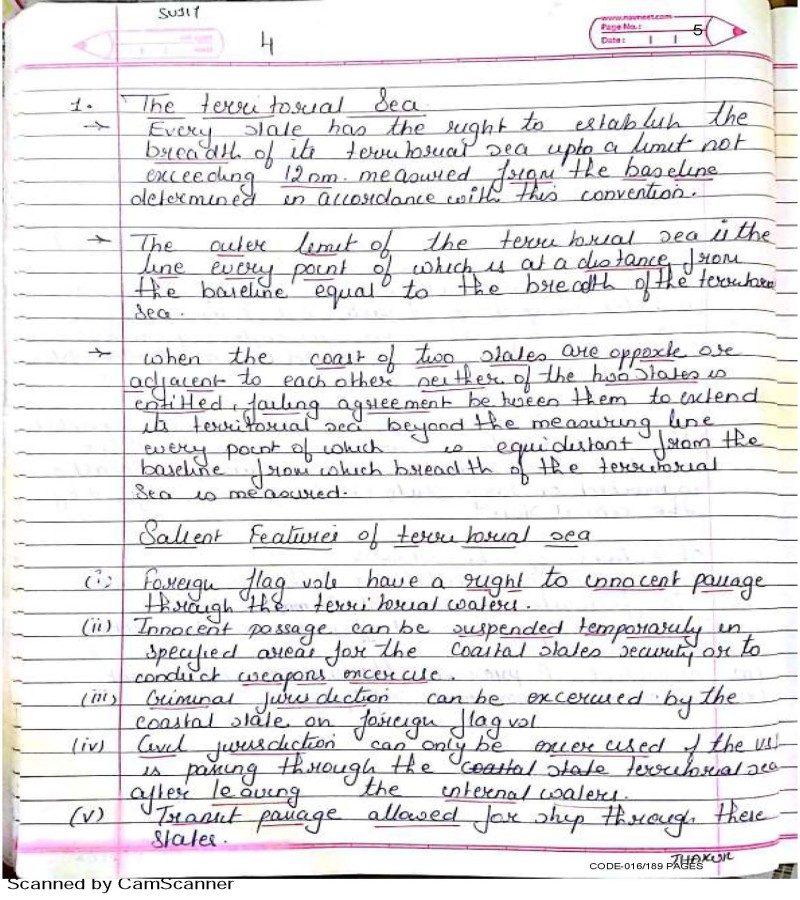 SUJIT
4
www.navneet.com
Page No.: 5
Date: | |
1. The territorial Sea
→ Every state has the right to establish the
breadth of its territorial sea upto a limit not
exceeding 12nm. measured from the baseline
determined in accordance with this convention.
→ The outer limit of the territorial sea is the
line every point of which is at a distance from
the baseline equal to the breadth of the territorial
sea.
→ when the coast of two states are opposite or
adjacent to each other neither of the two states is
entitled, failing agreement between them to extend
its territorial sea beyond the measuring line
every point of which is equidistant from the
baseline from which breadth of the territorial
sea is measured.
Salient Features of territorial sea
(i) Foreign flag vsls have a right to innocent passage
through the territorial waters.
(ii) Innocent passage can be suspended temporarily in
specified areas for the coastal states security or to
conduct weapons excercise.
(iii) Criminal jurisdiction can be excercised by the
coastal state on foreign flag vsl
(iv) Civil jurisdiction can only be excercised if the vsl
is passing through the coastal state territorial sea
after leaving the internal waters.
(v) Transit passage allowed for ship through these
states.
THAKUR
CODE-016/189 PAGES
Scanned by CamScanner